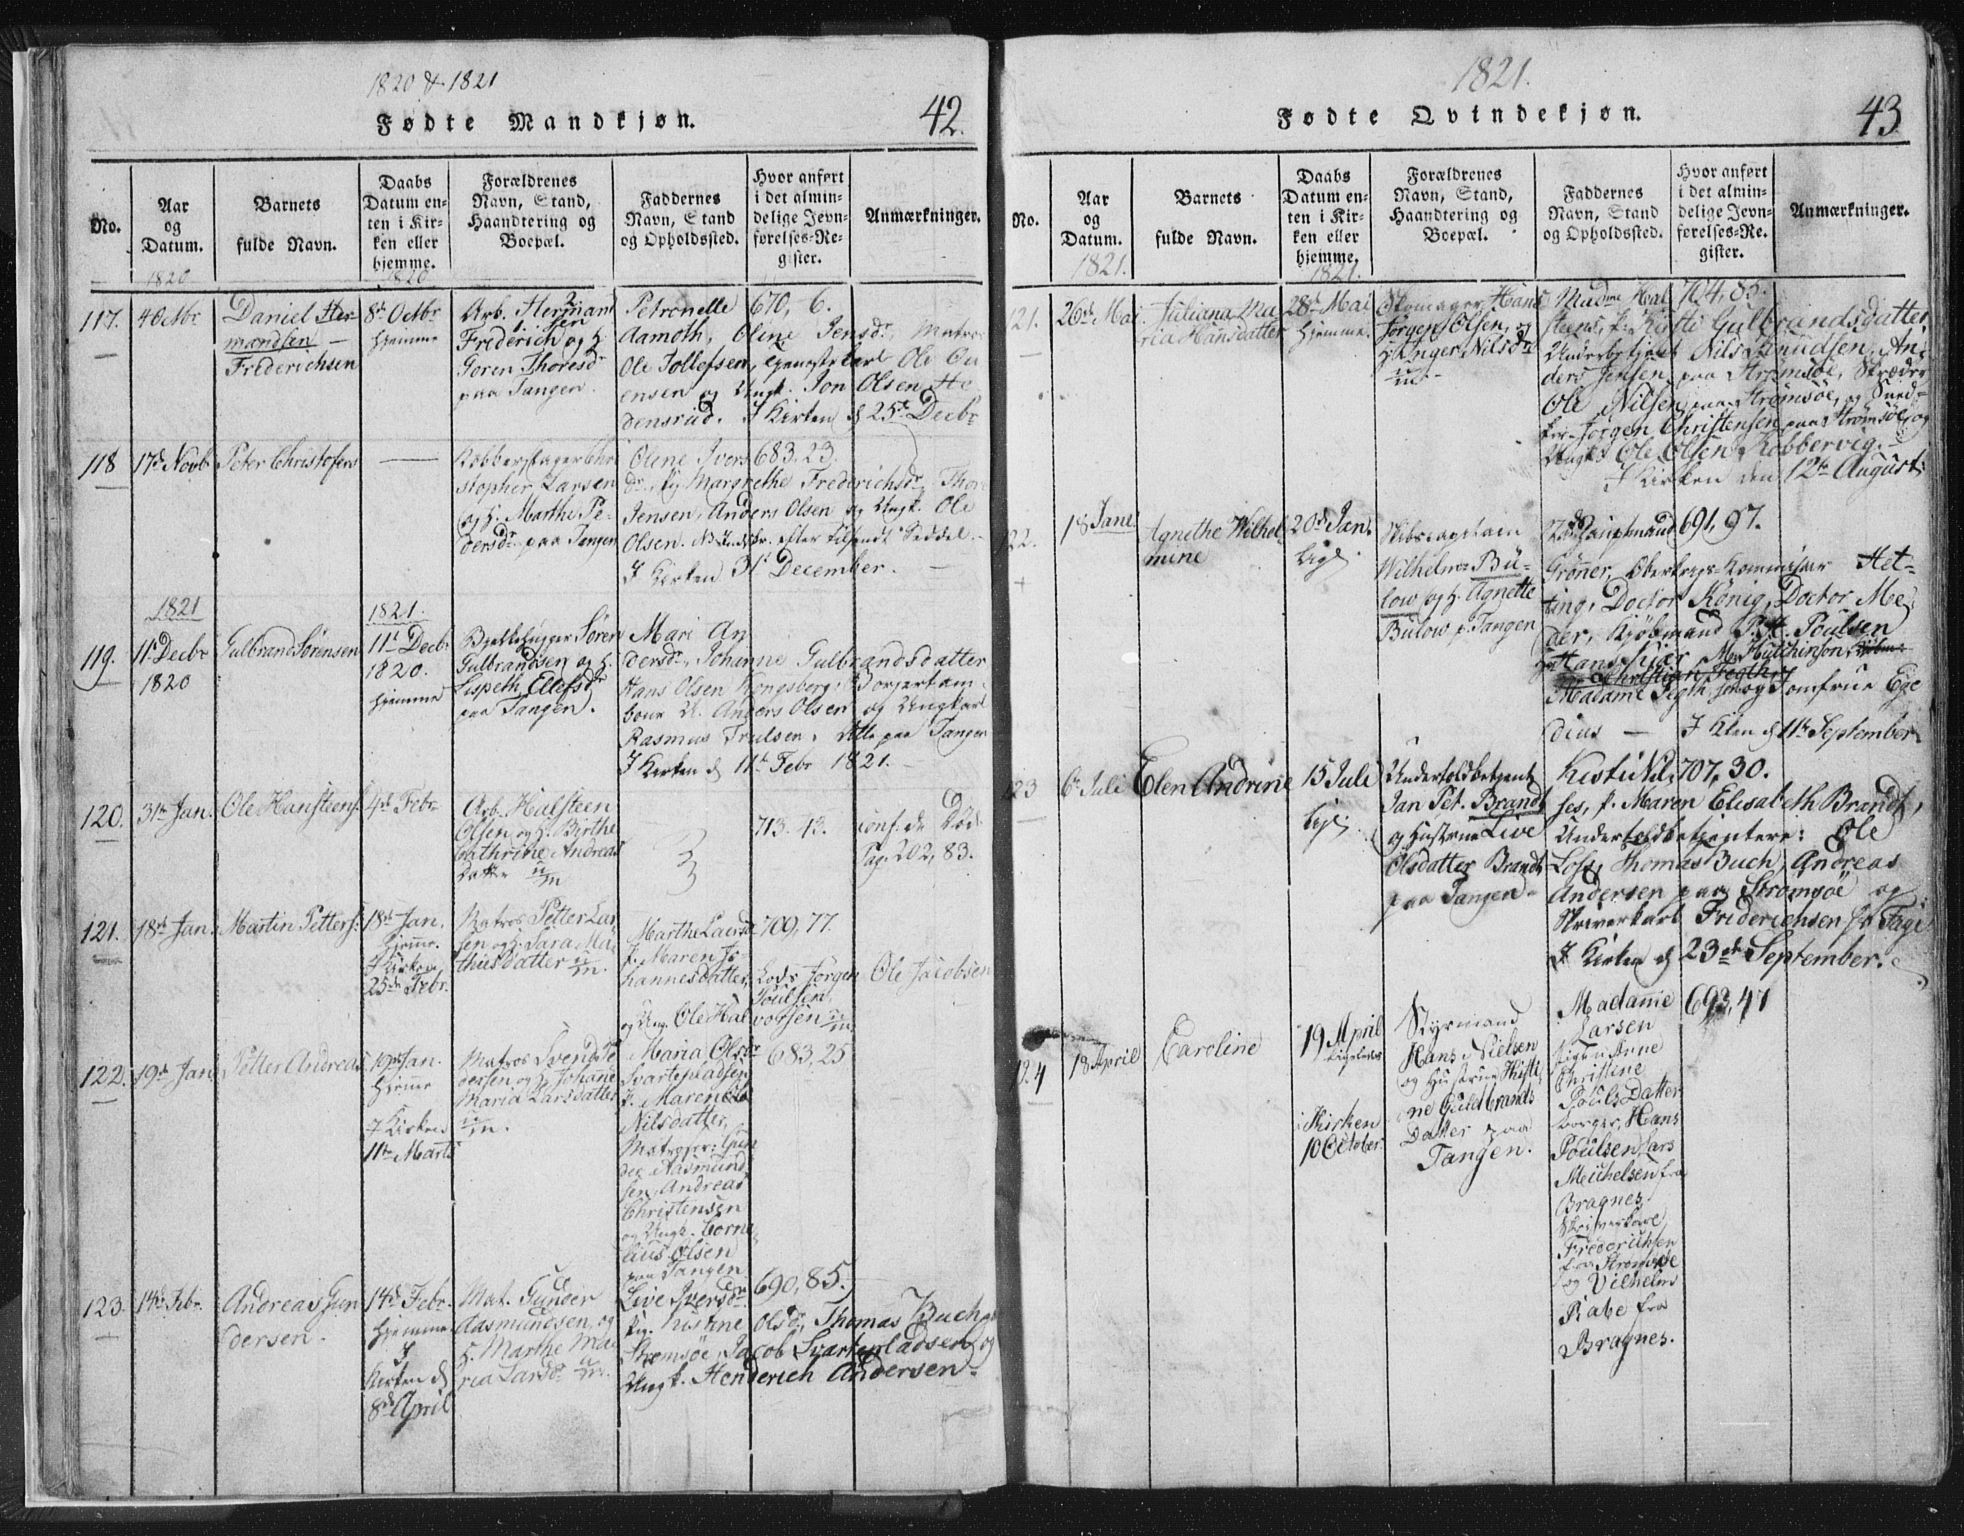 1820 & 1821
Fødte Mandkjøn.
42.
No.
Aar og Datum.
Barnets fulde Navn.
Daabs Datum enten i Kirken eller hjemme.
Forældrenes Navn, Stand, Haandtering og Boepæl.
Faddernes Navn, Stand og Opholdssted.
Hvor anført i det almindelige Jevnførelses-Register.
Anmærkninger.
1820
1820
117.
4 Octbr
Daniel Hermandsen
Friderichsen
8de Octbr
hjemme
Arb. Herman
Friderich og H.
Goren Thoresdr
paa Tangen.
Petronelle 670, 6.
Aamoth, Olene Jensdr, Matros
Ole Tollefsen,
og Ungk. Jon Olsen
I Kirken d 25de Decbr
118
17de Novb
Peter Christofers
Christopher Larsen
og H. Marthe Pedersdr paa Tangen
Olene Ivers 683.23.
dr., Margrethe Friderichsdr,
Jensen, Anders Olsen og Ungk. Ole
Olsen. efter tilsendt Seddel.
I Kirken 31te December.
1821
1821.
119.
11te Decbr
1820
Gulbrand Sørensen
11te Decbr
1820.
hjemme
Søren
Gulbrandsen og H.
Lispeth Ellefsdr
paa Tangen.
Mari Andersdr, Johanne Gulbrandsdatter
Hans Olsen Kongsberg,
Anders Olsen og Ungkarl
Rasmus Trulsen, alle paa Tangen
I Kirken d 11te Febr 1821.
120.
31te Jan.
Ole Hansteens.
4de Febr
Arb. Halsteen
Olsen og H. Birthe
Cathrine Andreas
Datter
713. 43.
conf. de Død.
Pag. 202, 83.
121.
18de Jan.
Martin Petters.
18de Jan.
hjemme.
I Kirken
25de Febr.
Matros Petter Larsen og H. Sara Mathiesdatter
Marthe Larsdr 709, 77.
P. Maren Johannesdatter,
Lods Jørgen
Poulsen,
Ole Jacobsen
og Ung. Ole Halvorsen
122.
19de Jan.
Petter Andreas
19de Jan.
hjemme
I Kirken
11te Marti
Matros Svend Pedersen og H. Johane
Maria Larsdatter
Maria Olsdr 683, 25
Svartepladsen,
P. Maren
Nilsdatter,
Matroser: Gunder Aasmundsen, Andreas
Christensen
og Ungk. Cornelius Olsen
paa Tangen
123.
14de Febr.
Andreas Gundersen.
14de Febr.
hjemme
I
Kirken d
8de April
Mat. Gunder
Aasmundsen og
H. Marthe Maria Larsdr
Live Iversdr 690, 85.
Pig. Kistine Olsdr, Thomas Buch
Strømsøe, Jacob Svartepladsen og
Ungk. Henderich Andersen.
1821.
Fødte Qvindekjøn.
43
No.
Aar og Datum.
Barnets fulde Navn.
Daabs Datum enten i Kirken eller hjemme.
Forældrenes Navn, Stand, Haandtering og Boepæl.
Faddernes Navn, Stand og Opholdssted.
Hvor anført i det almindelige Jevnførelses-Register.
Anmærkninger.
1821.
1821.
121.
26de Mai
Juliana Maria Hansdatter
28de Mai
hjemme.
Skomager Hans
Jørgen Olsen, og
H. Inger Nilsdr
Madme Halsteens, P. Kirsti Gulbrandsdatter, 704, 85.
Nils Knudsen, Anders Jensen, paa Strømsøe, Skræder
Ole Nilsen paa Strømsøe, og Snedker Jørgen Christensen paa Strømsøe, og
Ungk. Ole Olsen Kobbervig.
I Kirken den 12te August.
122.
18 Jane
Agnethe Wilhelmine
20de Jan.
lige
Skibscapitain
Wilhelm Bülow og H. Agnette
Bülow p. Tangen
Hauptmand 691, 97.
Grøner, Oberkrigs-Kommisair Hetting, Doctor König, Doctor Meder, Kjøbmand P. H. Poulsen
Hutchinson
Christian Fegth
Madame Fegth og Jomfrue Egedius
I Kken d 11te September
123
6te Juli
Elen Andrine
15 Jule
lige
Undertoldbetjent
Jan Pet. Brandt
og Hustrue Live
Olsdatter Brandt
paa Tangen
707, 30.
P. Maren Elisabeth Brandt,
Undertoldbetjentere: Ole
Thomas Buch, Andreas
Andersen paa Strømsøe og
Skriverkarl Friderichsen
I Kirken d 23de September.
124
18 April
Caroline
19 April
i Kirken
10 October
Styrmand
Hans Nielsen
og Hustrue Kistine Guldbrands
Datter paa
Tangen.
Madame 693, 47
Larsen
Pigen Anne
Christine
Pouls Datter
borger, Hans
Poulsen, Lars
Meichelsen fra
Bragnes
Skriverkarl
Frederichsen
fra Strømsøe
og Vilhelm
Rabe fra
Bragnes.